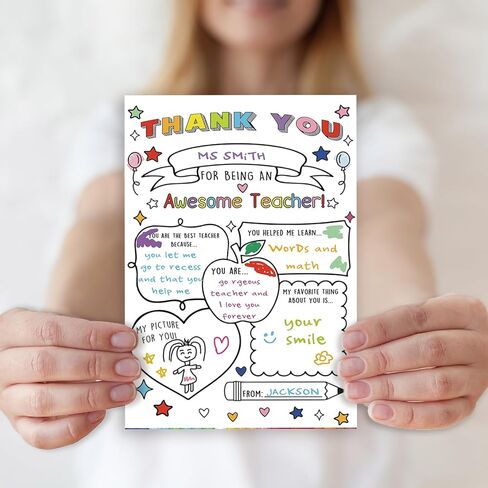 THANK YOU
MS SMiTH
FOR BEING AN
Awesome Teacher!
YOU ARE THE BEST TEACHER
BECAUSE...
you let me
go to recess
and that you
help me
YOU HELPED ME LEARN...
WorDs and
math
YOU ARE...
go rgeous
teacher and
I love you
forever
MY FAVORITE THING
ABOUT YOU IS...
your
smile
MY PICTURE
FOR YOU!
FROM: JACKSON